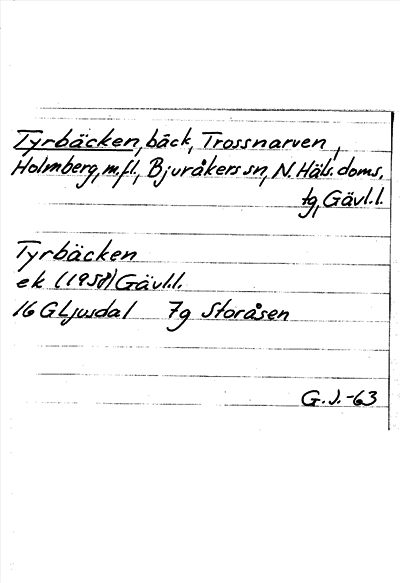 Tyrbäcken, bäck, Trossnarven,
Holmberg, m.fl., Bjuråkers sn, N. Häls. doms.
tg, Gävl.l.
Tyrbäcken
ek (1958) Gävl.l.
16 G Ljusdal 7g Storåsen
G.J.-63